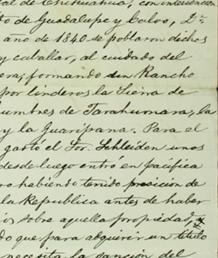 al de Chihuahua, con
to de Guadalupe y Calvo,
año de 1840 se poblaron dichos
y caballar, al cuidado del
era; formando un Rancho
por linderos la Sierra de
umbres de Tarahumara, la
y la Guaripana. Para el
gastó el Sor. Schleiden unos
desde luego entró en pacífica
o habiendo tenido posesion de
la Republica antes de haber
sobre aquella propiedad,
do que para adquirir un titulo
necesita la sancion del